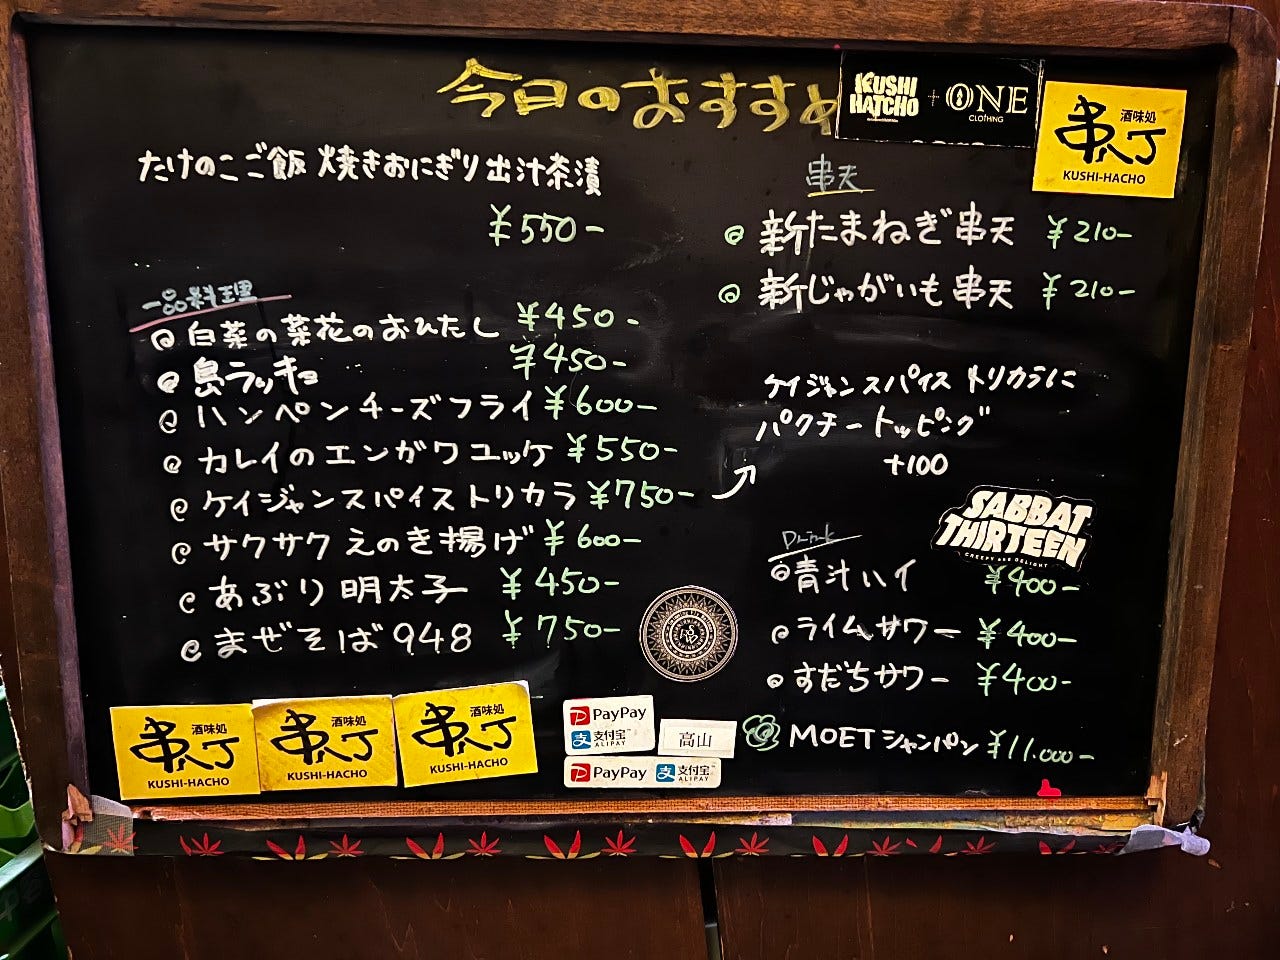 今日のおすすめ
KUSHI HATCHO + ONE CLOTHING
酒味処
串八丁
KUSHI-HACHO
たけのこご飯 焼きおにぎり出汁茶漬
¥550-
一品料理
白菜の菜花のおひたし ¥450-
島ラッキョ ¥450-
ハンペンチーズフライ ¥600-
カレイのエンガワユッケ ¥550-
ケイジャンスパイストリカラ ¥750-
サクサクえのき揚げ ¥600-
あぶり明太子 ¥450-
まぜそば948 ¥750-
串天
新たまねぎ串天 ¥210-
新じゃがいも串天 ¥210-
ケイジャンスパイストリカラに
パクチートッピング
+100
SABBAT
THIRTEEN
CREEPY AND DELIGHT
Drink
青汁ハイ ¥400-
ライムサワー ¥400-
すだちサワー ¥400-
MOETシャンパン ¥11.000-
酒味処
串八丁
KUSHI-HACHO
酒味処
串八丁
KUSHI-HACHO
酒味処
串八丁
KUSHI-HACHO
PayPay
支付宝
ALIPAY
高山
PayPay 支付宝
ALIPAY